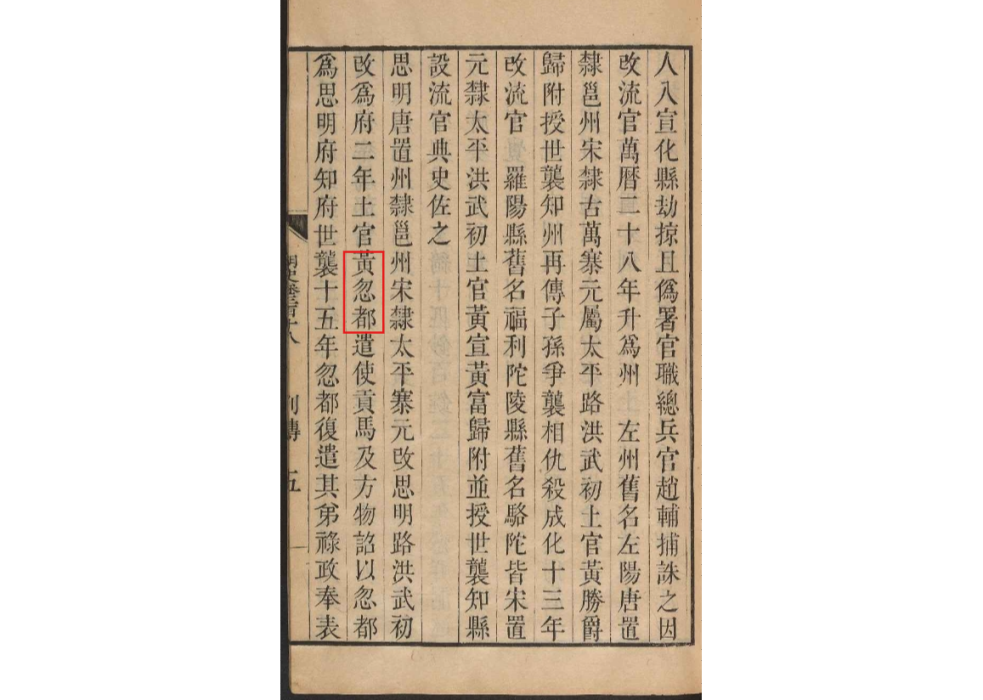 人入宣化縣劫掠且僞署官職總兵官趙輔捕誅之因
改流官萬曆二十八年升爲州 左州舊名左陽唐置
隸邕州宋隸古萬寨元屬太平路洪武初土官黃勝爵
歸附授世襲知州再傳子孫爭襲相仇殺成化十三年
改流官 羅陽縣舊名福利陀陵縣舊名駱陀皆宋置
元隸太平洪武初土官黃宣黃富歸附並授世襲知縣
設流官典史佐之
思明唐置州隸邕州宋隸太平寨元改思明路洪武初
改爲府二年土官黃忽都遣使貢馬及方物詔以忽都
爲思明府知府世襲十五年忽都復遣其弟祿政奉表
明史卷三百十八 列傳 五